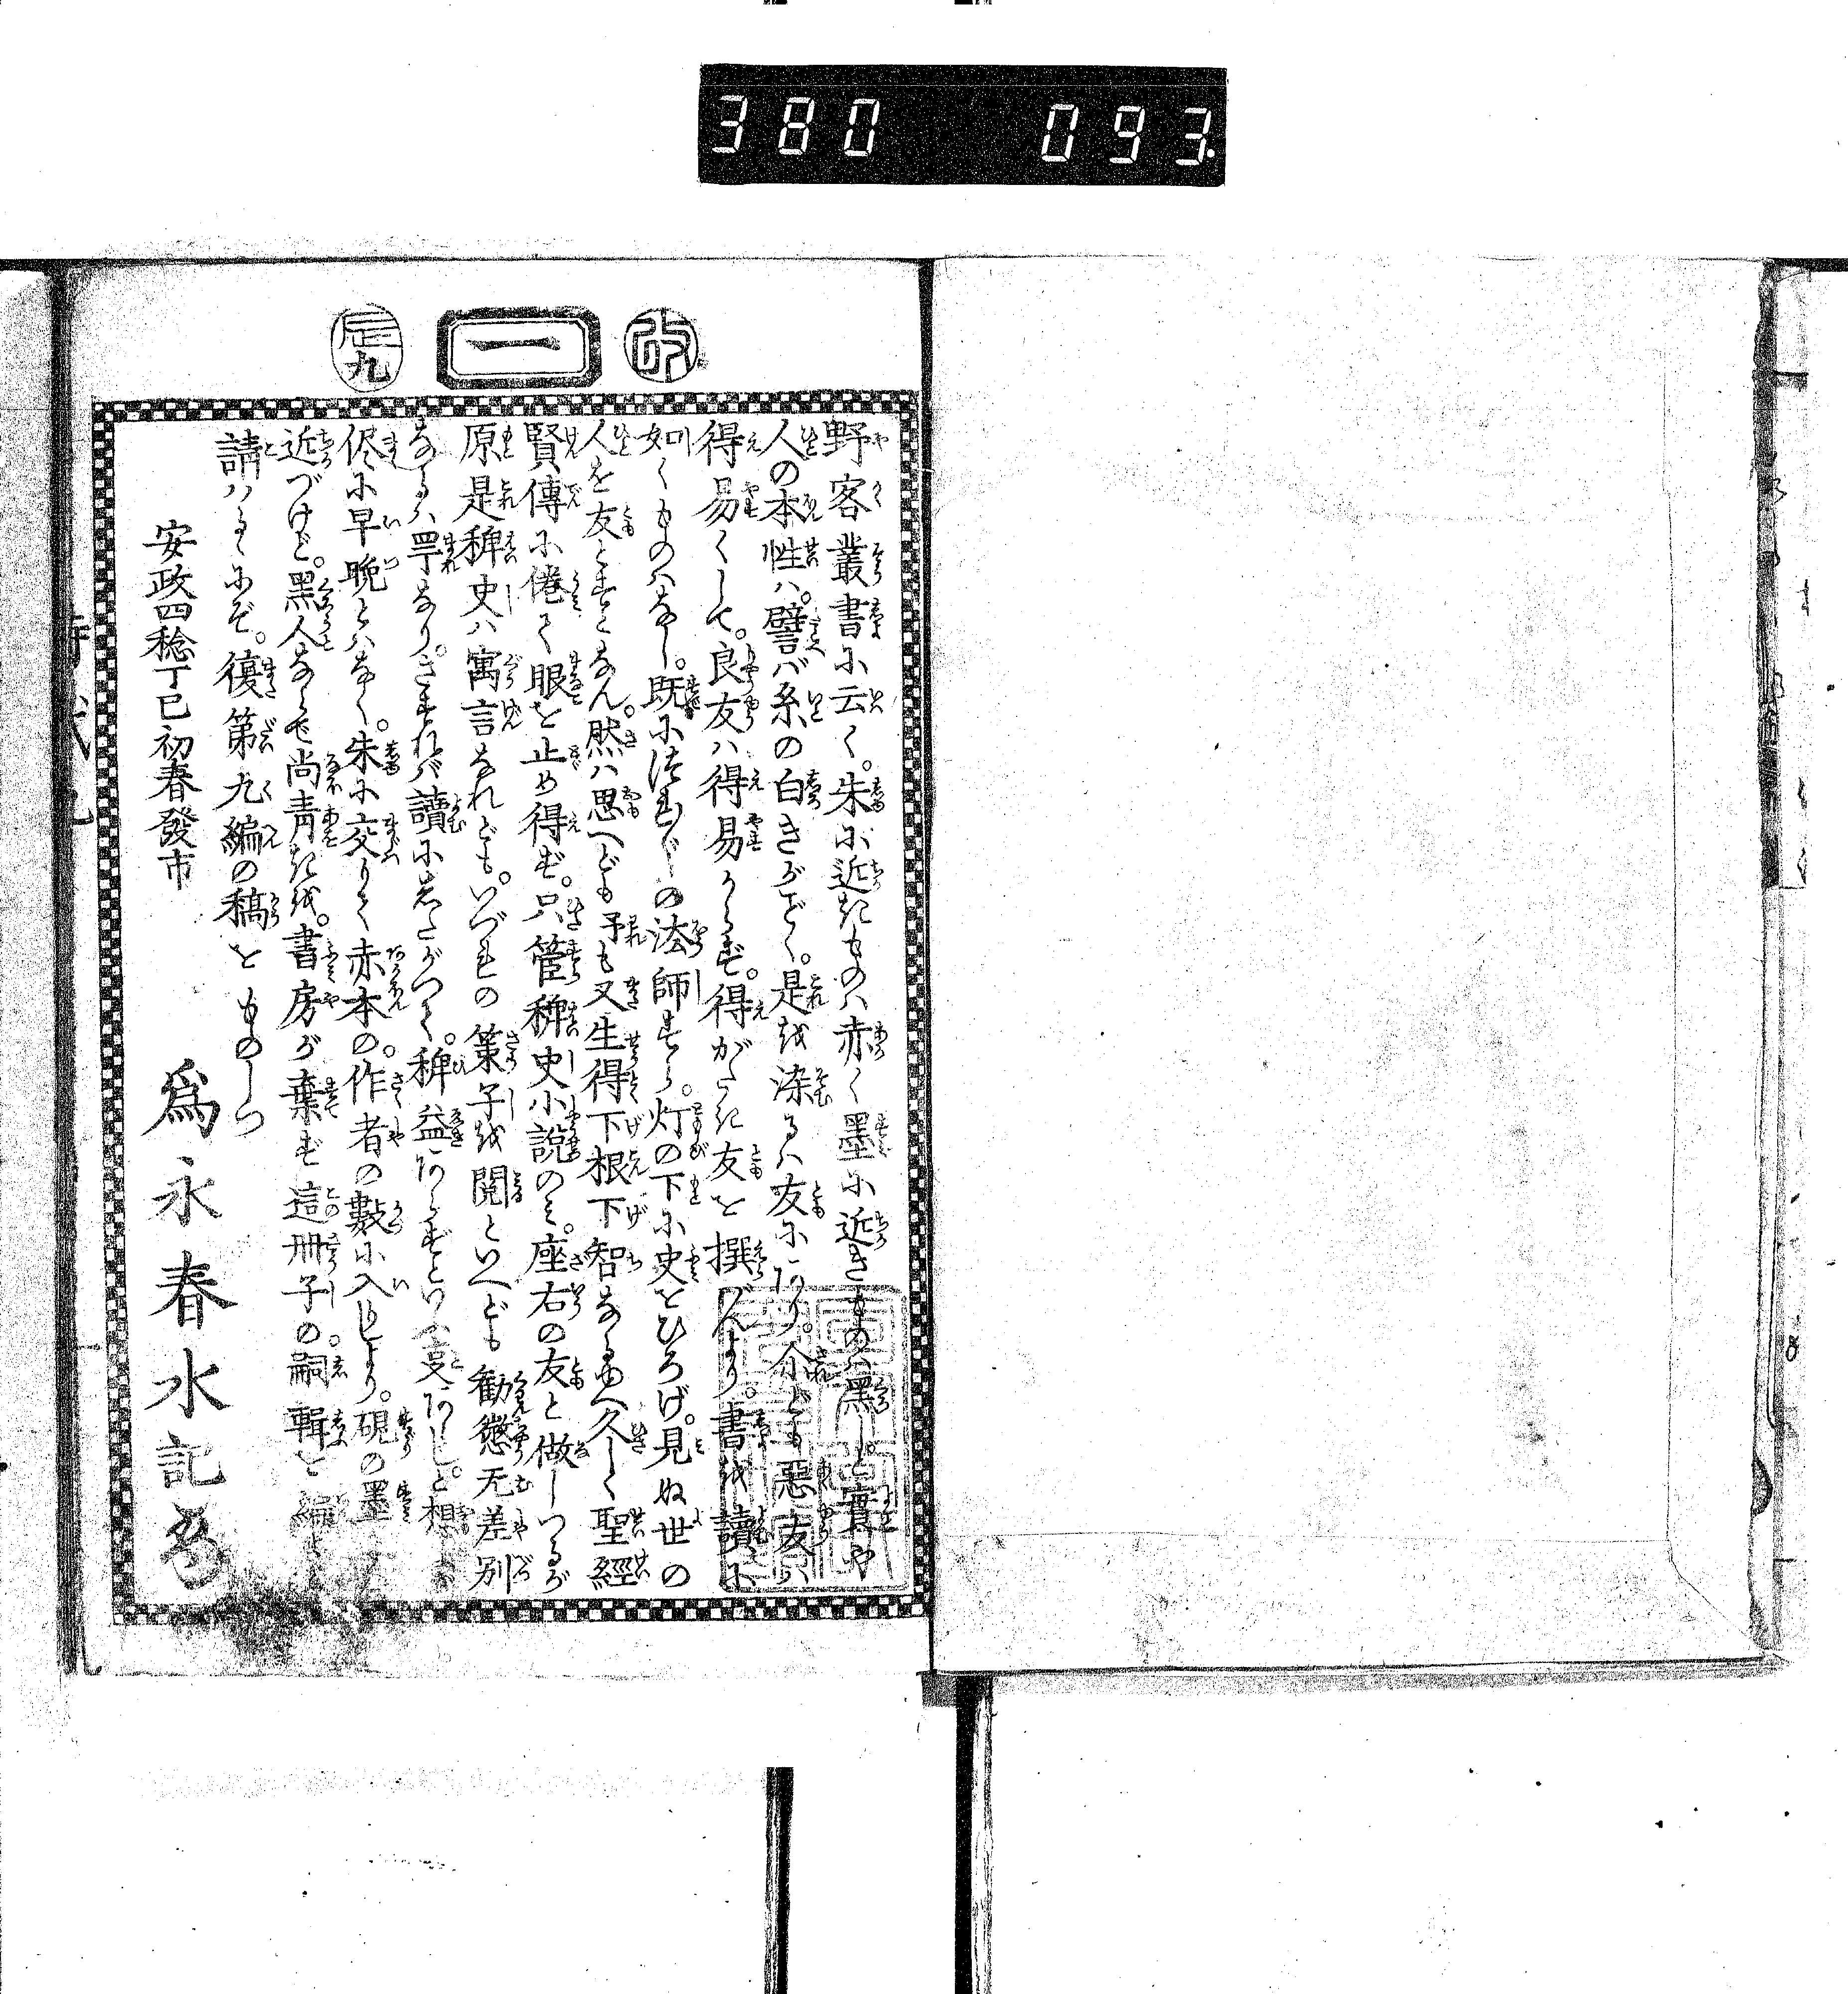 380 093.
改
一
辰九
野客叢書に云く。朱に近きものハ赤く墨に近きものハ黒しと實や
人の本性ハ。譬バ糸の白きがごとく。是を染るハ友にあり。尓ども惡友ハ
得易くして。良友ハ得易からず。得がたき友を撰ばんより。書を讀に
如くものハなし。既につれ〴〵の法師すら。灯の下に史をひろげ。見ぬ世の
人を友とすとなん。然ハ思へども予も又生得下根下智なるゆへ久しく聖經
賢傳に倦て眼を止め得ず。只管稗史小説のミ。座右の友と做しつるが
原是稗史ハ寓言なれども。いづれの策子を閲といへども勸懲无差別
なるハ罕なり。されバ讀にしたがつて。稗益あらずといふ叓あらじと想ふが
侭に早晩とハなく。朱に交りて赤本の。作者の數に入しより。硯の墨に
近づけど。黒人ならで尚青きを。書房が棄ず這冊子の。嗣輯を編よと
請ハるゝにぞ。復第九編の稿をものしつ
安政四稔丁巳初春發市
爲永春水記